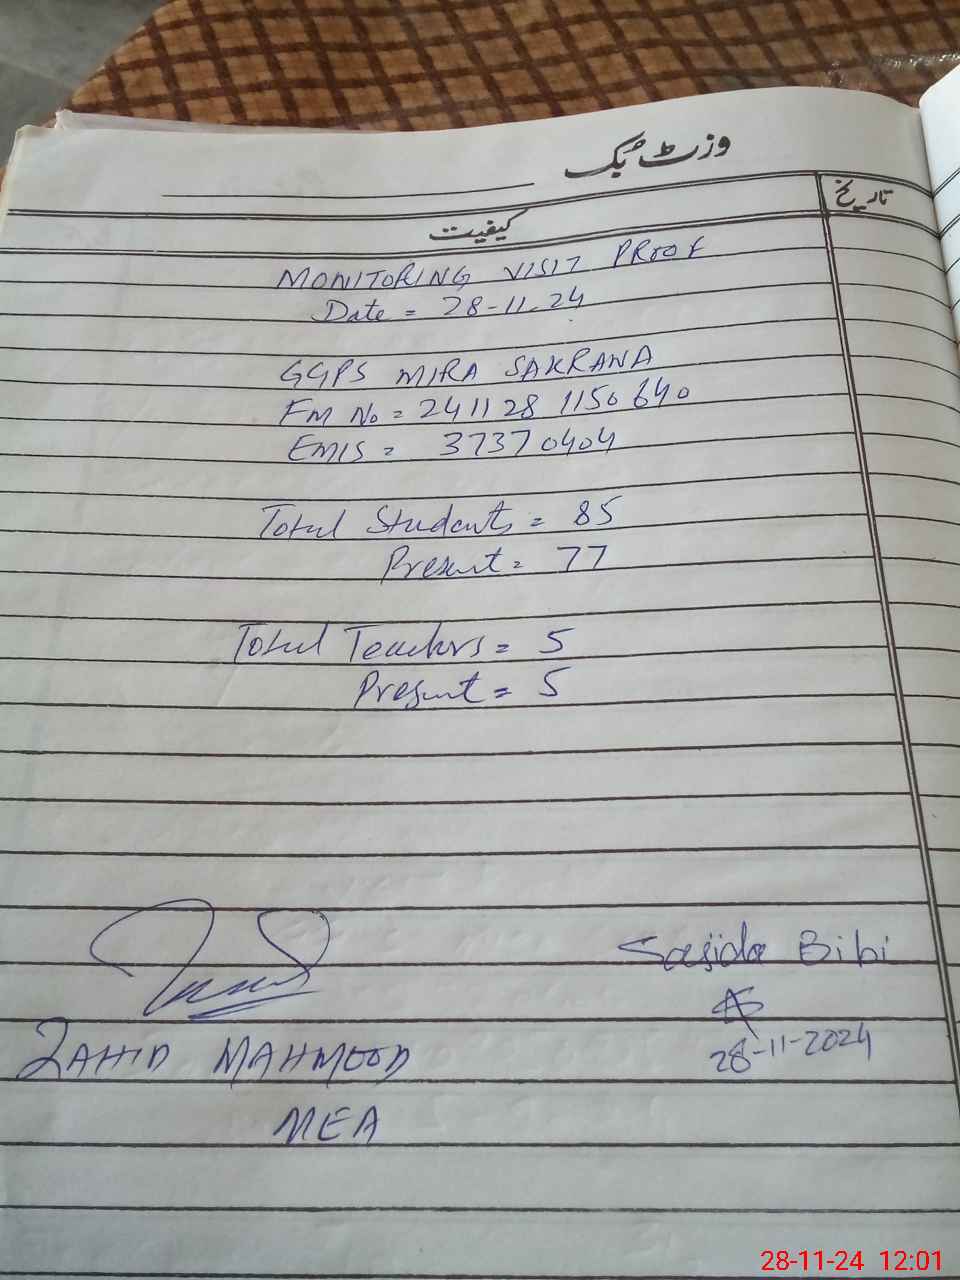 وزٹ بُک
تاریخ
کیفیت
MONITORING VISIT PROOF
Date = 28-11-24
GGPS MIRA SAKRANA
FM No = 241128 1150640
EMIS = 37370404
Total Students = 85
Present = 77
Total Teachers = 5
Present = 5
Sajida Bibi
28-11-2024
ZAHID MAHMOOD
MEA
28-11-24 12:01